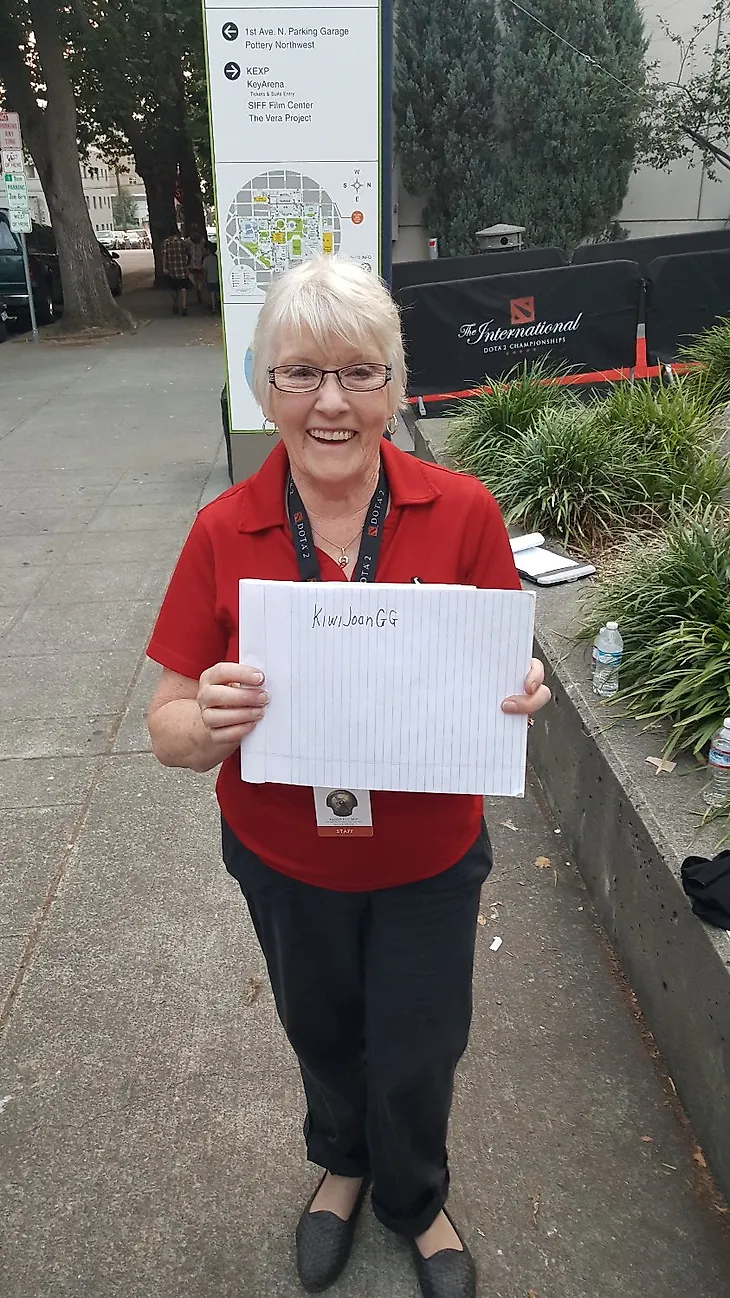 1st Ave. N. Parking Garage
Pottery Northwest
KEXP
KeyArena
Tickets & Suite Entry
SIFF Film Center
The Vera Project
W
S N
E
PARKING
The International
DOTA 2 CHAMPIONSHIPS
DOTA 2
DOTA 2
KiwiJoanGG
STAFF